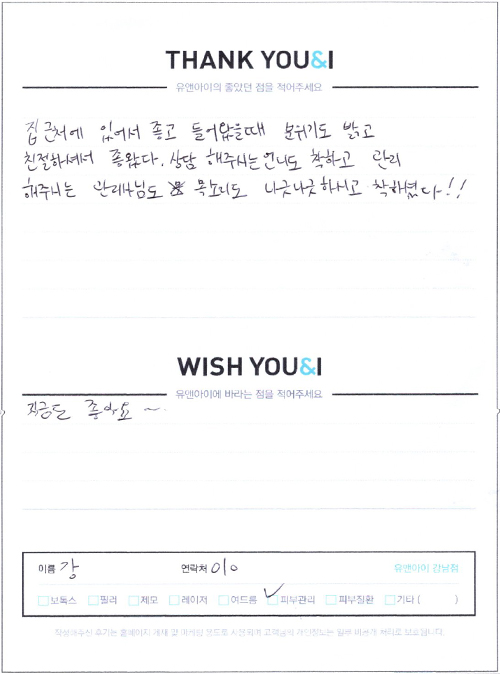 THANK YOU&I
유앤아이의 좋았던 점을 적어주세요
집 근처에 있어서 좋고 들어왔을때 분위기도 밝고
친절하셔서 좋았다. 상담 해주시는 언니도 착하고 관리
해주시는 관리사님도 목소리도 나긋나긋하시고 착하셨다!!
WISH YOU&I
유앤아이에 바라는 점을 적어주세요
지금도 좋아요~
이름 강 연락처 010 유앤아이 강남점
보톡스 필러 제모 레이저 여드름 ✓피부관리 피부질환 기타 ( )
작성해주신 후기는 홈페이지 게재 및 마케팅 용도로 사용되며 고객님의 개인정보는 일부 비공개 처리로 보호됩니다.